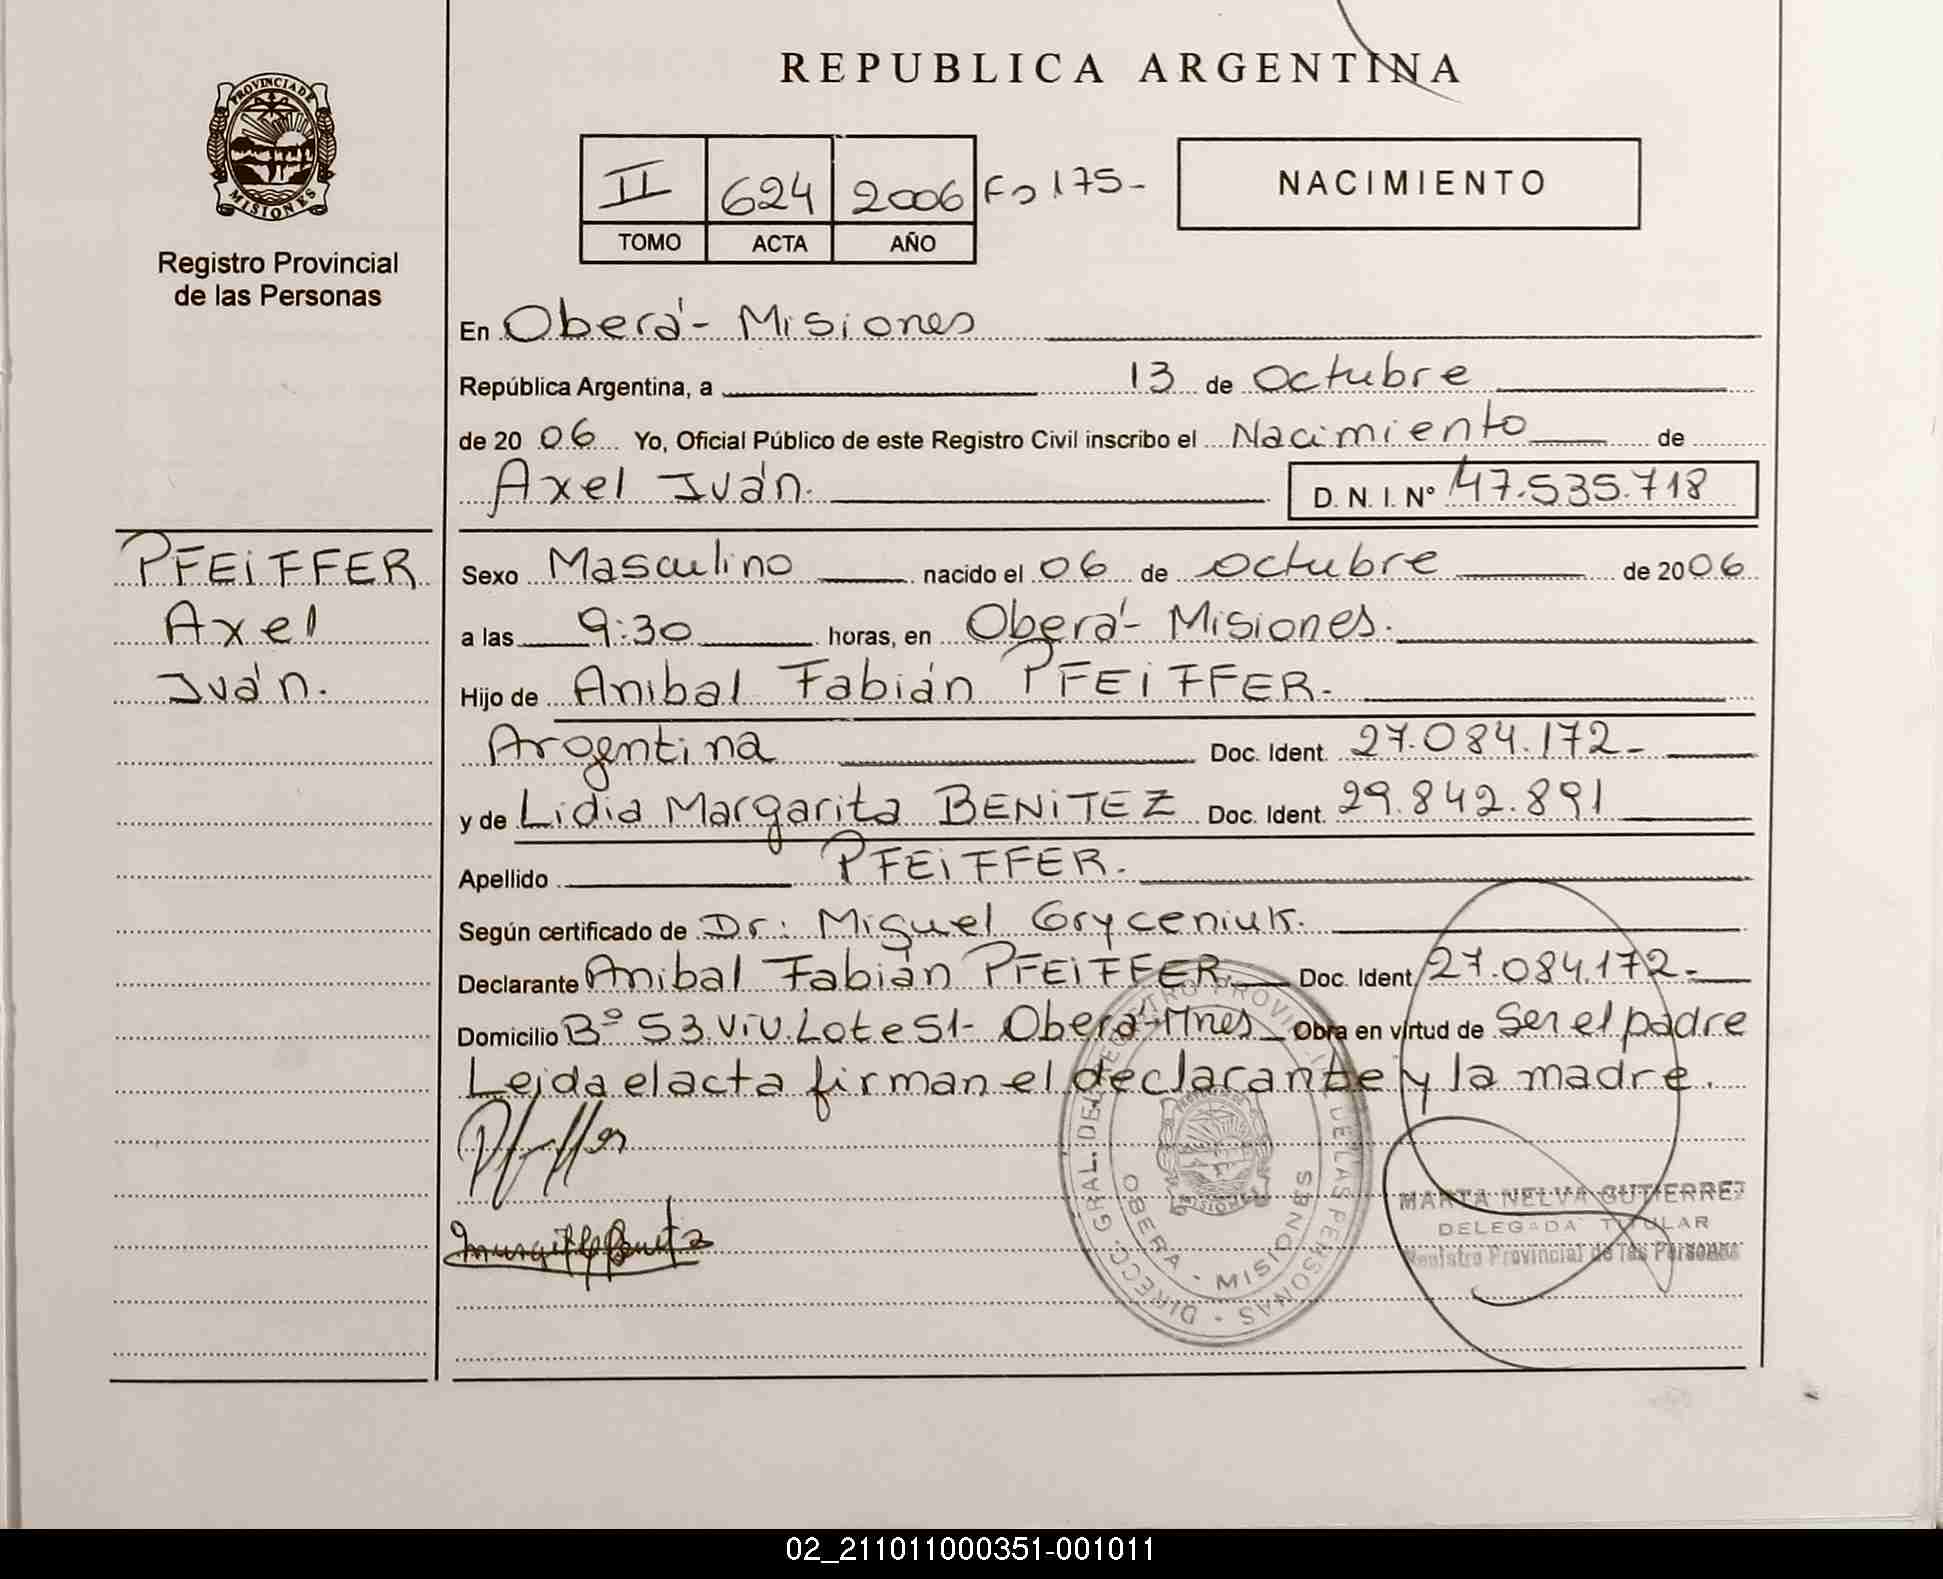 REPUBLICA ARGENTINA
PROVINCIA DE MISIONES
Registro Provincial
de las Personas
II 624 2006 Fo 175-
TOMO ACTA AÑO
NACIMIENTO
En Oberá - Misiones
República Argentina, a 13 de Octubre
de 2006 Yo, Oficial Público de este Registro Civil inscribo el Nacimiento de
Axel Iván. D. N. I. N° 47.535.718
PFEiFFER
Axel
Iván.
Sexo Masculino nacido el 06 de octubre de 2006
a las 9:30 horas, en Oberá - Misiones.
Hijo de Anibal Fabián PFEiFFER.
Argentina Doc. Ident. 27.084.172-
y de Lidia Margarita BENiTEZ Doc. Ident. 29.842.891
Apellido PFEiFFER.
Según certificado de Dr: Miguel Gryceniuk.
Declarante Anibal Fabián PFEiFFER. Doc. Ident 27.084.172-
Domicilio Bº 53.Viv.Lote 51- Oberá-Mnes Obra en virtud de Ser el padre
Leida el acta firman el declarante y la madre.
DIRECC. GRAL. DEL REGISTRO PROVINCIAL DE LAS PERSONAS
OBERA - MISIONES
MARTA NELVA GUTIERREZ
DELEGADA TITULAR
Registro Provincial de las Personas
02_211011000351-001011